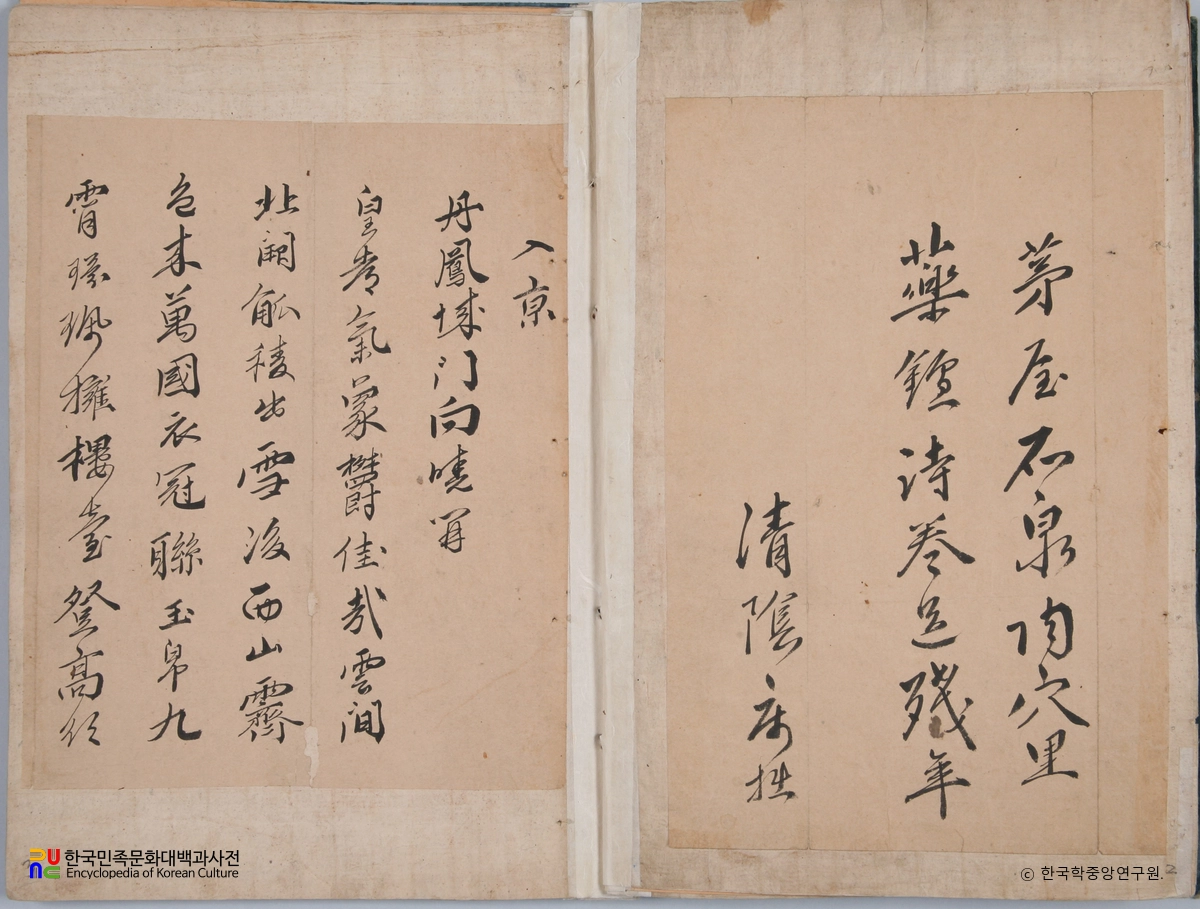 茅屋石泉陶穴里
藥鑪詩卷送殘年
清陰病拙
入京
丹鳳城門向曉開
皇都氣象鬱佳哉雲間
北闕觚稜出雪後西山霽
色来萬國衣冠聯玉帛九
霄環珮擁樓臺登高欲
한국민족문화대백과사전
Encyclopedia of Korean Culture
ⓒ 한국학중앙연구원.